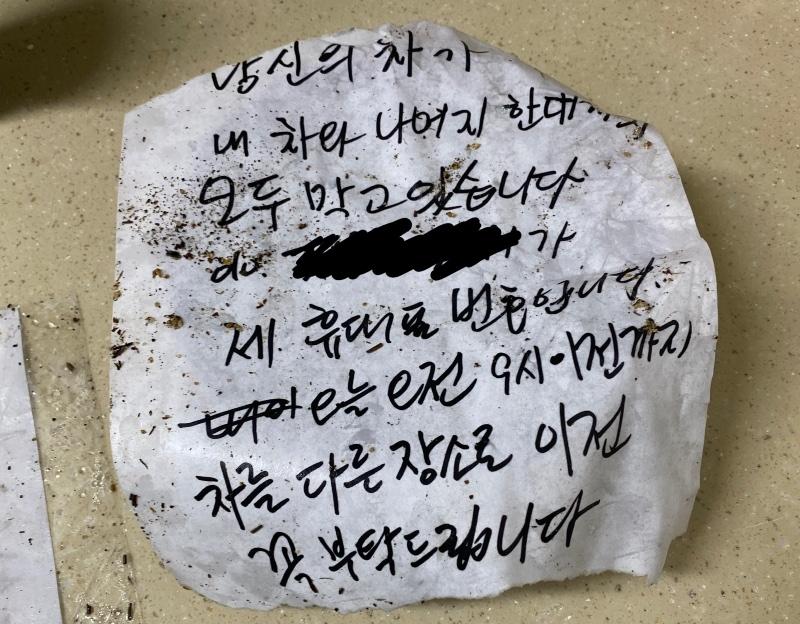 당신의 차가
내 차와 나머지 한대
모두 막고 있습니다
가
세 휴대폰 번호입니다.
오늘 오전 9시 이전까지
차를 다른 장소로 이전
꼭 부탁드립니다